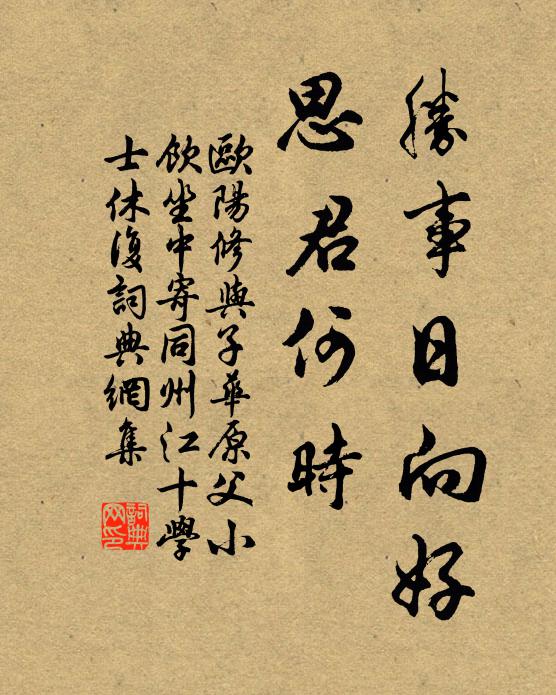 勝事日向好
思君何時
歐陽修與子華原父小
飲坐中寄同州江十學
士休復詞典網集
詞典
网印